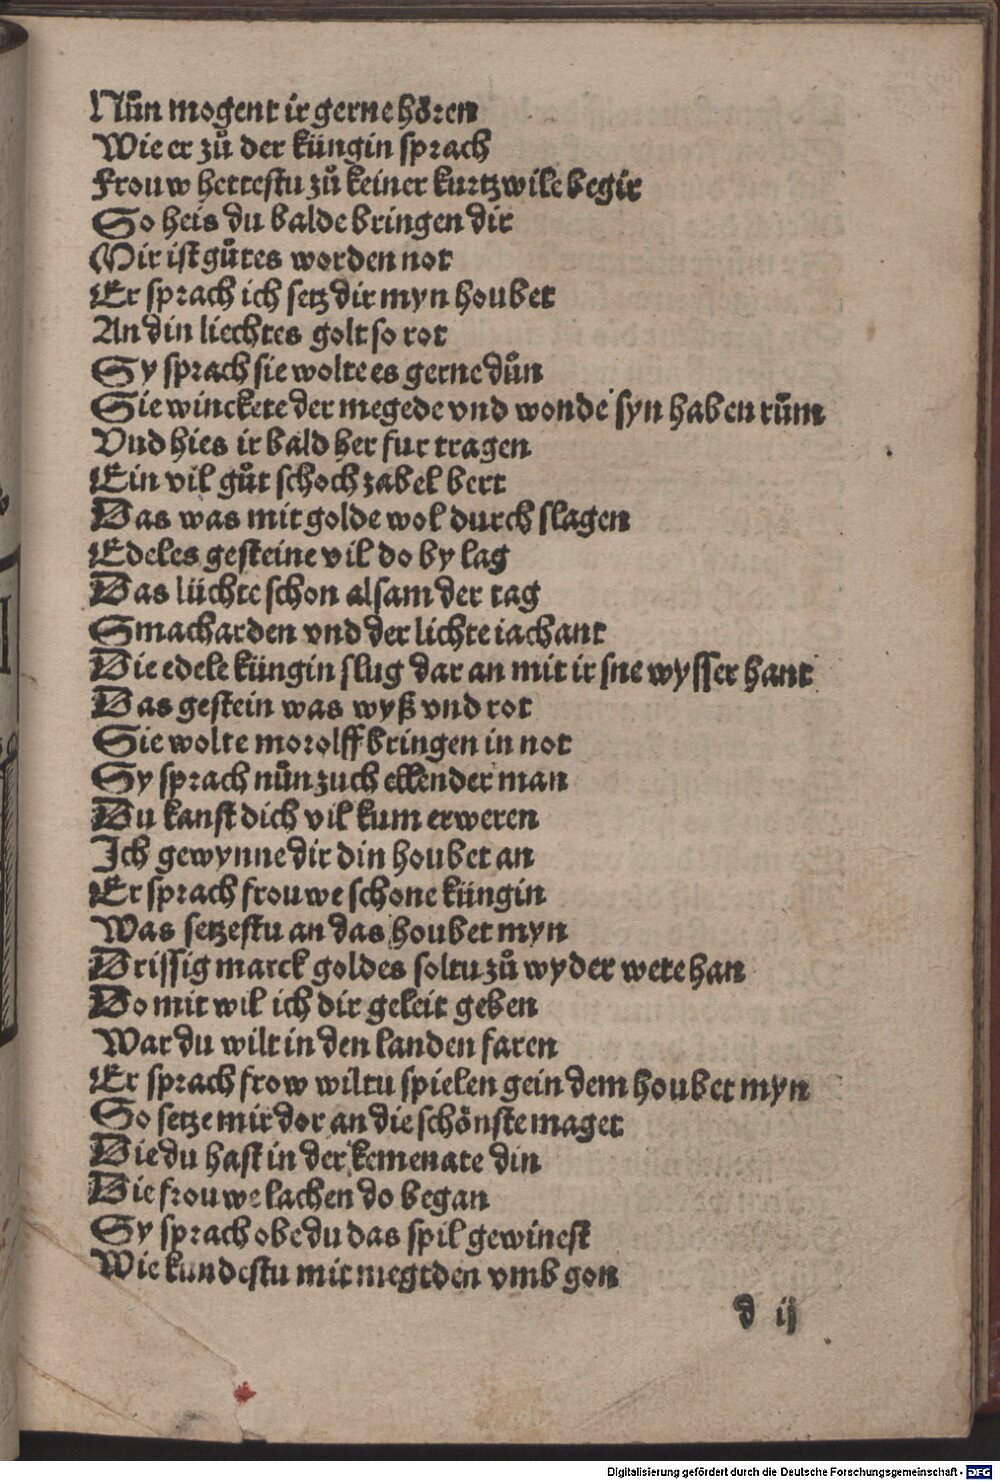 Nůn mogent ir gerne hören
Wie er zů der küngin sprach
Frouw hettestu zů keiner kurtzwile begir
So heis du balde bringen dir
Mir ist gůtes worden not
Er sprach ich setz dir myn houbet
An din liechtes golt so rot
Sy sprach sie wolte es gerne důn
Sie winckete der megede vnd wonde syn haben rům
Vnd hies ir bald her fur tragen
Ein vil gůt schoch zabel bert
Das was mit golde wol durch slagen
Edeles gesteine vil do by lag
Das lüchte schon alsam der tag
Smacharden vnd der lichte iachant
Die edele küngin slug dar an mit ir sne wysser hant
Das gestein was wyß vnd rot
Sie wolte morolff bringen in not
Sy sprach nůn zuch ellender man
Du kanst dich vil kum erweren
Ich gewynne dir din houbet an
Er sprach frouwe schone küngin
Was setzestu an das houbet myn
Drissig marck goldes soltu zů wyder wete han
Do mit wil ich dir geleit geben
War du wilt in den landen faren
Er sprach frow wiltu spielen gein dem houbet myn
So setze mir dor an die schönste maget
Die du hast in der kemenate din
Die frouwe lachen do began
Sy sprach obe du das spil gewinest
Wie kundestu mit megtden vmb gon
d ij
Digitalisierung gefördert durch die Deutsche Forschungsgemeinschaft - DFG